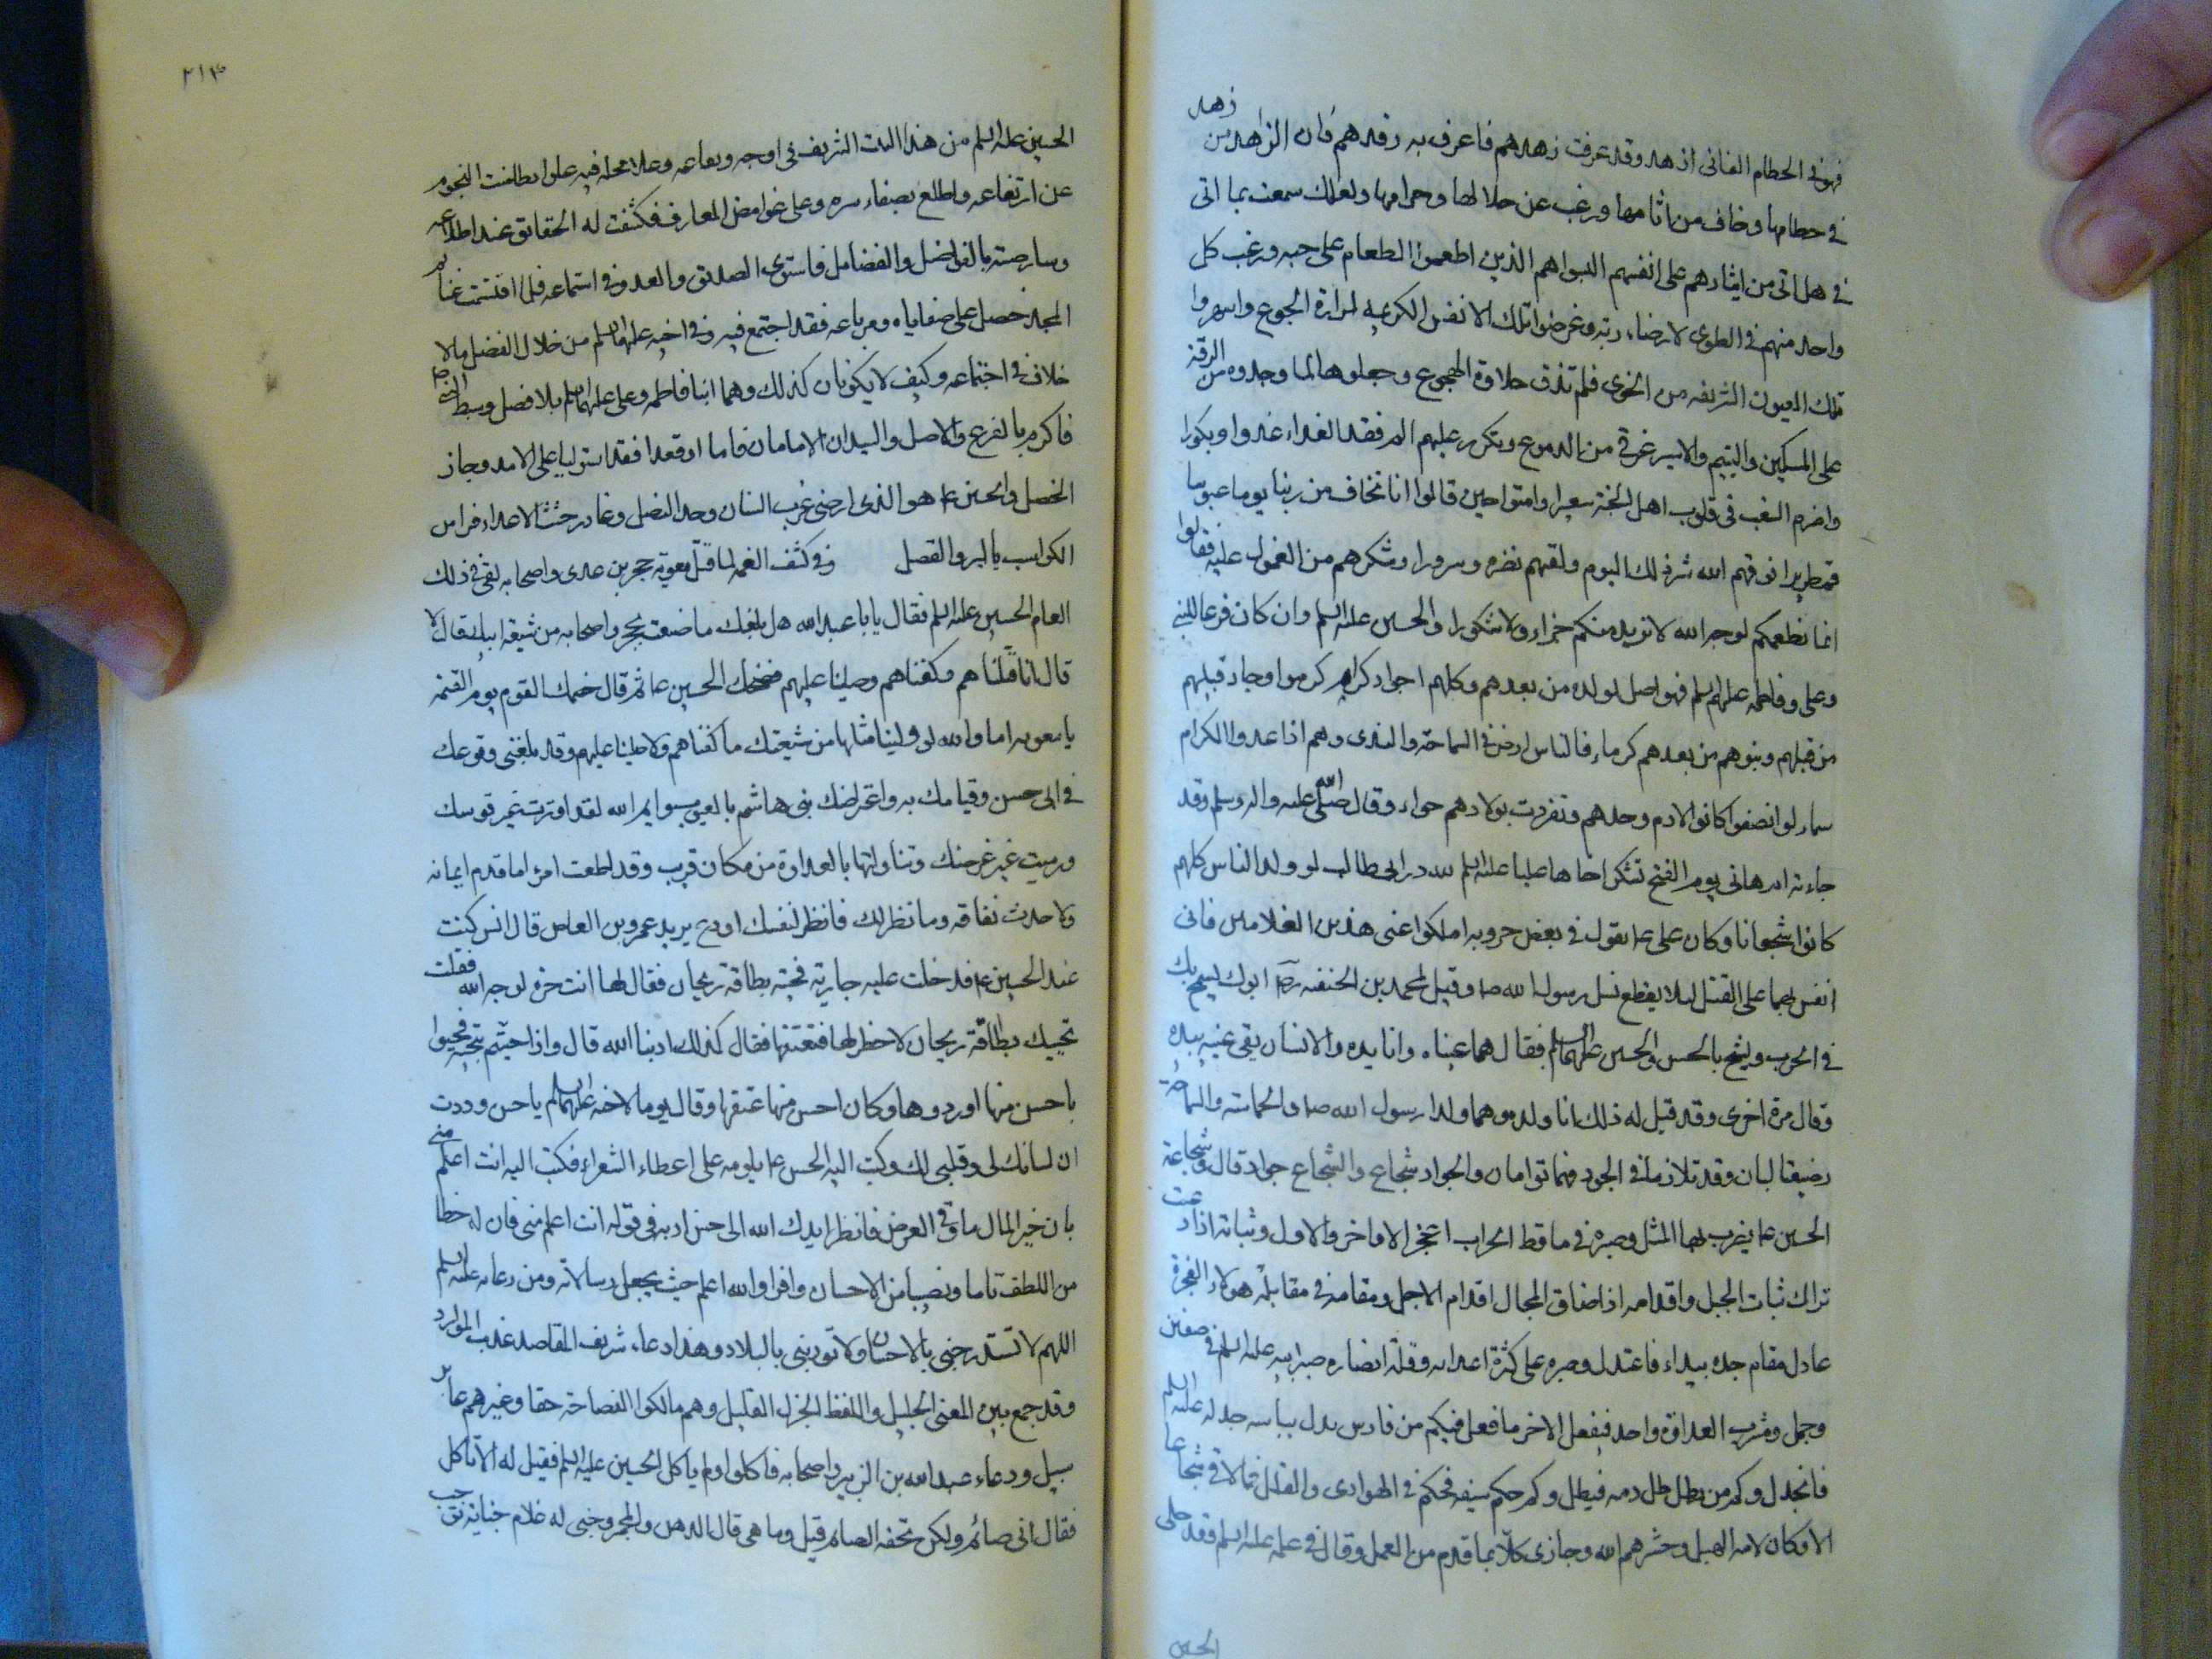 زهد
فهو في الحطام الفاني ازهد وقد عرفت زهدهم فاعرف به رفدهم فان الزاهد من
في حطامها وخاف من اثامها ورغب عن حلالها وحرامها ولعلك سمعت بما اتى
في هل اتى من ايثارهم على انفسهم اليسوا هم الذين اطعموا الطعام على حبه ورغب كل
واحد منهم في الطوى لارضاء ربه وعرضوا تلك الانفس الكريمة لمرارة الجوع واسهروا
تلك العيون الشريفه من الخوى فلم تذق حلاوة الهجوع وجعلوها لما وجدوه من الرقة
على المسكين واليتيم والاسير غرقى من الدموع وتكرر عليهم الم فقد الغداء غدوا وبكورا
واضرم السغب في قلوب اهل الجنة سعيرا وامنوا حين قالوا انا نخاف من ربنا يوما عبوسا
قمطريرا فوقهم الله شر ذلك اليوم ولقهم نضره وسرورا وشكرهم من انعموا عليه فقالوا
انما نطعمكم لوجه الله لا نريد منكم جزاء ولا شكورا والحسين عليه السلم وان كان فرعا للنبي
وعلى وفاطمه عليهم السلم فهو اصل لولده من بعدهم وكلهم اجواد كرام كرموا وجاد قبيلهم
من قبلهم وبنوهم من بعدهم كرماء فالناس ارض في السماحة والندى وهم اذا عد والكرام
سماء لو انصفوا كانوا لادم وحدهم وتفردت بولادهم حواء وقال صلى الله عليه واله وسلم وقد
جاءته ام هاني يوم الفتح تشكو اخاها عليا عليه السلم لله در ابي طالب لو ولد الناس كلهم
كانوا شجعانا وكان على ع يقول في بعض حروبه املكوا عني هذين الغلامين فاني
انفس بهما على القتل لئلا ينقطع نسل رسول الله ص وقيل لمحمد بن الحنفيه رض ابوك يسمح بك
في الحرب ويشح بالحسن والحسين عليهما السلم فقال هما عيناه وانا يده والانسان يقي عينيه بيده
وقال مرة اخرى وقد قيل له ذلك انا ولده وهما ولدا رسول الله ص والحماسة والسماحة
رضيعتا لبان وقد تلازما في الجود فهما توامان والجواد شجاع والشجاع جواد قال وشجاعة
الحسين ع يضرب بها المثل وصبره في ماقط الحراب اعجز الاواخر والاول وثباته اذا دعيت
نزال ثبات الجبل واقدامه اذا ضاق المجال اقدام الاجل ومقامه في مقابلة هولاء الفجرة
عادل مقام جده ببدر فاعتدل وصبره على كثرة اعدائه وقلة انصاره صبر ابيه عليه السلم في صفين
وجمل ومشرب العداوة واحد فبفعل الاخر ما فعل فيكم من فارس مدل بباسه جدله عليه السلم
فانجدل وكم من بطل طل دمه فبطل وكم حكم سيفه فحكم في الهوادى والقلل فما لاقى شجاعا
الا وكان لامه الهبل وحشرهم الله وجازى كلا بما قدم من العمل وقال في علمه عليه السلم فقد حلى
الحسين
٢١٣
الحسين عليه السلم من هذا البيت الشريف في اوجه ويفاعه وعلا محله فيه علوا تطامنت النجوم
عن ارتفاعه واطلع بصفاء سره وعلى غوامض المعارف فكشفت له الحقائق عند اطلاعه
وسار صيته بالفواضل والفضايل فاستوى الصديق والعدو في استماعه فلما اقتسمت غنايم
المجد حصل على صفاياه ومرباعه فقد اجتمع فيه وفي اخيه عليهما السلم من خلال الفضل مالا
خلاف في اجتماعه وكيف لا يكونان كذلك وهما ابنا فاطمه وعلى عليهما السلم بلا فصل وسبطا النبي ص
فاكرم بالفرع والاصل والسيدان الامامان قاما او قعدا فقد استوليا على الامد وحاز
الخصل والحسين ع هو الذي ارضى غرب السنان وحد النصل وغادر جثث الاعداء فرايس
الكواسب بالبر والفصل وفي كشف الغمه لما قتل معويه حجر بن عدى واصحابه لقي في ذلك
العام الحسين عليه السلم فقال يا ابا عبد الله هل بلغك ما صنعت بحجر واصحابه من شيعة ابيك فقال لا
قال انا قتلناهم وكفناهم وصلينا عليهم فضحك الحسين ع ثم قال خصمك القوم يوم القيمة
يا معويه اما والله لو ولينا مثلها من شيعتك ما كفناهم ولا صلينا عليهم وقد بلغني وقوعك
في ابي حسن وقيامك به واعتراضك بني هاشم بالعيوب وايم الله لقد اوترت غير قوسك
ورميت غير غرضك وتناولتها بالعداوة من مكان قريب وقد اطعت امرا ما قدم ايمانه
ولا حدث نفاقه وما نظر لك فانظر لنفسك او دع يريد عمرو بن العاص قال انس كنت
عند الحسين ع فدخلت عليه جارية فحيته بطاقة ريحان فقال لها انت حرة لوجه الله فقلت
تحييك بطاقة ريحان لا خطر لها فتعتقها فقال كذلك ادبنا الله قال واذا حييتم بتحية فحيوا
باحسن منها او ردوها وكان احسن منها عتقها وقال يوما لاخيه عليهما السلم يا حسن وددت
ان لسانك لي وقلبي لك وكتب اليه الحسن ع يلومه على اعطاء الشعراء فكتب اليه انت اعلم مني
بان خير المال ما وقى العرض فانظر ايدك الله الى حسن ادبه في قوله انت اعلم مني فان له حظا
من اللطف تاما ونصيبا من الاحسان وافرا والله اعلم حيث يجعل رسالاته ومن دعائه عليه السلم
اللهم لا تستدرجني بالاحسان ولا تؤدبني بالبلاء وهذا دعاء شريف المقاصد عذب الموارد
وقد جمع بين المعنى الجليل واللفظ الجزل القليل وهم مالكوا الفصاحة حقا وغيرهم عابر
سبيل ودعاه عبد الله بن الزبير واصحابه فاكلوا ولم ياكل الحسين عليه السلم فقيل له الا تاكل
فقال اني صائم ولكن تحفه الصائم قيل وما هي قال الدهن والمجمر وجنى له غلام جناية توجب